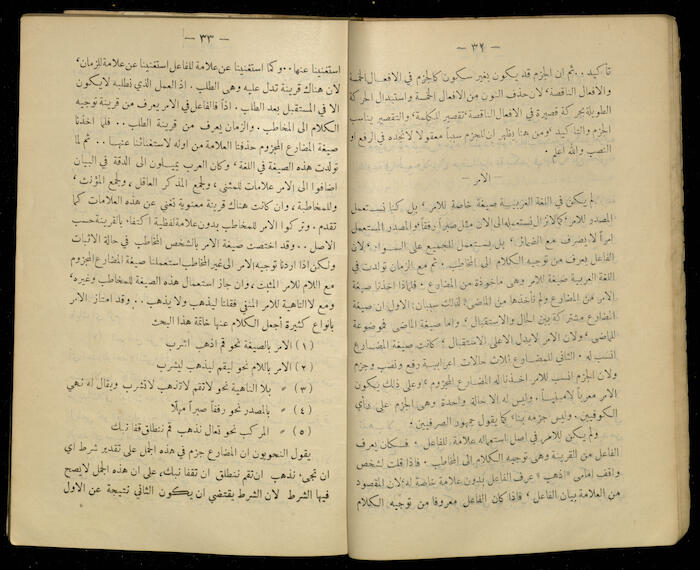 — ٣٢ —
تأكيد . . ثم ان الجزم قد يكون بغير سكون كالجزم في الافعال الخمسة
والافعال الناقصة ، لان حذف النون من الافعال الخمسة واستبدال الحركة
الطويلة بحركة قصيرة في الافعال الناقصة ، تقصير للكلمة ، والتقصير يناسب
الجزم والتأكيد ، ومن هنا يظهر ان للجزم سبباً معقولا لا نجده في الرفع او
النصب والله اعلم .
— الامر —
لم يكن في اللغة العربية صيغة خاصة للامر ، بل كنا نستعمل
المصدر للامر ، كما لا نزال نستعمله الى الان مثل صبراً رفقاً والمصدر المستعمل
امراً لا يصرف مع الضمائر ، بل يستعمل للجميع على السواء ، لان
الفاعل يعرف من توجيه الكلام الى المخاطب . ثم مع الزمان تولدت في
اللغة العربية صيغة للامر وهى مأخوذة من المضارع ، فلماذا اخذنا صيغة
الامر من المضارع ولم نأخذها من الماضى ؟ لذلك سببان : الاول ان صيغة
المضارع مشتركة بين الحال والاستقبال ، واما صيغة الماضى فموضوعة
للماضى ، ولان الامر لا يدل الا على الاستقبال ، كانت صيغة المضارع
انسب له . الثانى للمضارع ثلاث حالات اعرابية رفع ونصب وجزم
ولان الجزم انسب للامر اخذنا له المضارع المجزوم ، وعلى ذلك يكون
الامر معرباً لا مبنياً . وليس له الا حالة واحدة وهى الجزم على رأي
الكوفيين . وليس جزمه بناء كما يقول جمهور الصرفيين ؛
ولم يكن للامر في اصل استعماله علامة للفاعل ، فكان يعرف
الفاعل من القرينة وهى توجيه الكلام الى المخاطب . فاذا قلت لشخص
واقف امامى «اذهب» عرف الفاعل بدون علامة خاصة له ، لان المقصود
من العلامة بيان الفاعل ، فاذا كان الفاعل معروفا من توجيه الكلام
— ٣٣ —
استغنينا عنها . . وكما استغنينا عن علامة للفاعل استغنينا عن علامة للزمان ،
لان هناك قرينة تدل عليه وهى الطلب . اذ العمل الذي نطلبه لا يكون
الا في المستقبل بعد الطلب . اذاً فالفاعل في الامر يعرف من قرينة توجيه
الكلام الى المخاطب . والزمان يعرف من قرينة الطلب . . فلما اخذنا
صيغة المضارع المجزوم حذفنا العلامة من اوله لاستغنائنا عنها . . ثم لما
تولدت هذه الصيغة في اللغة ، وكان العرب يميلون الى الدقة في البيان
اضافوا الى الامر علامات للمثنى ، ولجمع المذكر العاقل ، ولجمع المؤنث ،
وللمخاطبة ، وان كانت هناك قرينة معنوية تغني عن هذه العلامات كما
تقدم . وتركوا الامر للمخاطب بدون علامة لفظية اكتفاء بالقرينة حسب
الاصل . . وقد اختصت صيغة الامر بالشخص المخاطب في حالة الاثبات
ولكن اذا اردنا توجيه الامر الى غير المخاطب استعملنا صيغة المضارع المجزوم
مع اللام للامر المثبت ، وان جاز استعمال هذه الصيغة للمخاطب وغيره ،
ومع لا الناهية للامر المنفي فقلنا ليذهب ولا يذهب . . وقد امتاز الامر
بانواع كثيرة أجعل الكلام عنها خاتمة هذا البحث
(١) الامر بالصيغة نحو قم اذهب اشرب
(٢) الامر باللام نحو ليقم ليذهب ليشرب
(٣) » بلا الناهية نحو لا تقم لا تذهب لا تشرب ويقال له نهي
(٤) » بالمصدر نحو رفقاً صبراً مهلا
(٥) » المركب نحو تعال نذهب قم ننطلق قفا نبك
يقول النحويون ان المضارع جزم في هذه الجمل على تقدير شرط اي
ان تجى نذهب ان تقم ننطلق ان تقفا نبك ، على ان هذه الجمل لا يصح
فيها الشرط لان الشرط يقتضي ان يكون الثاني نتيجة عن الاول